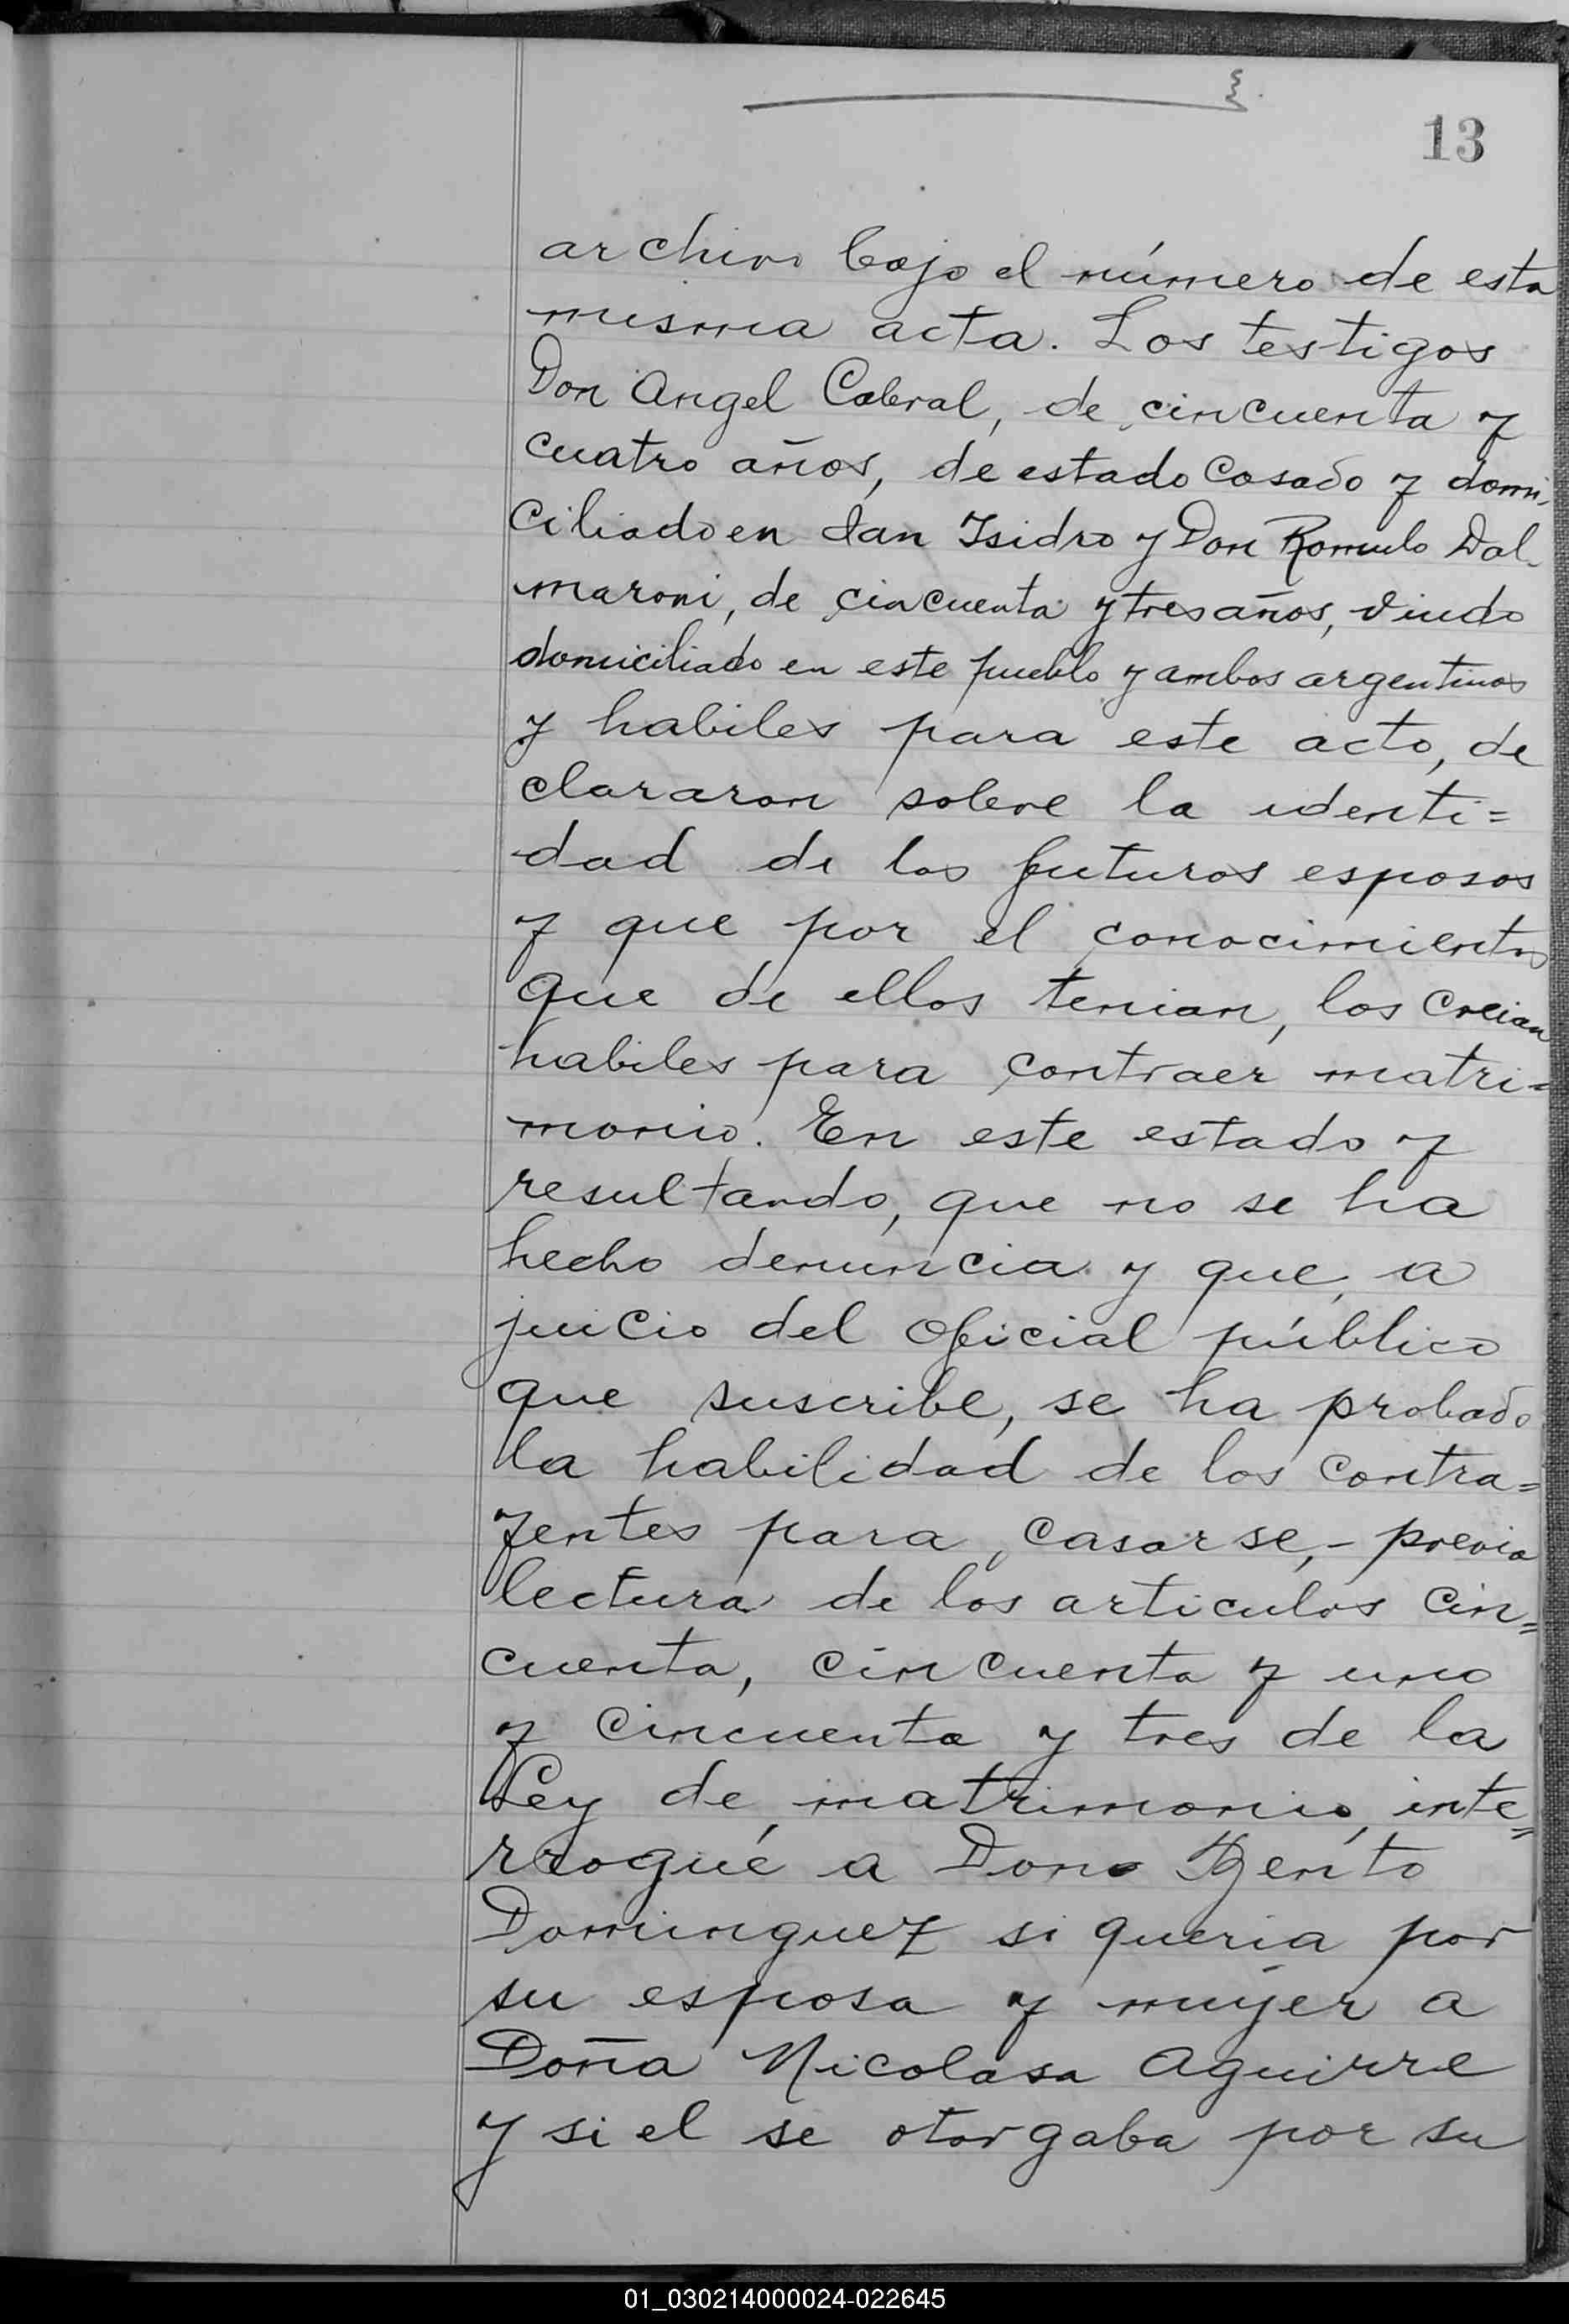 13
archivo bajo el número de esta
misma acta. Los testigos
Don Angel Cabral, de cincuenta y
cuatro años, de estado casado y domi-
ciliado en San Isidro y Don Romulo Dal-
maroni, de cincuenta y tres años, viudo
domiciliado en este pueblo y ambos argentinos
y habiles para este acto, de
clararon sobre la identi=
dad de los futuros esposos
y que por el conocimiento
que de ellos tenian, los creian
habiles para contraer matri=
monio. En este estado y
resultando, que no se ha
hecho denuncia y que, a
juicio del oficial público
que suscribe, se ha probado
la habilidad de los contra=
yentes para casarse,- previa
lectura de los articulos cin=
cuenta, cincuenta y uno
y cincuenta y tres de la
Ley de matrimonio, inte=
rrogué a Don Benito
Dominguez si queria por
su esposa y mujer a
Doña Nicolasa Aguirre
y si el se otorgaba por su
01_030214000024-022645